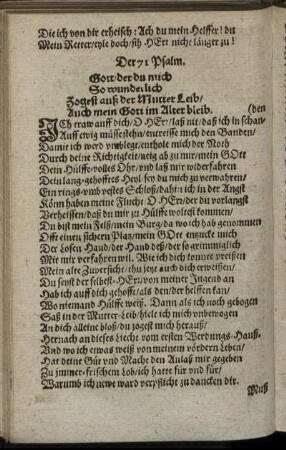 Die ich von dir erheisch: Ach du mein Helffer! du
Mein Retter/eyle doch/sih HErr nicht länger zu!
Der 71 Psalm.
Gott/der du mich
So wunderlich
Zogest auß der Mutter Leib/
Auch mein Gott im Alter bleib.
(den
ICh traw auff dich/ O HErr/laß nit/daß ich in schan/
Auff ewig müsse stehn/entreisse mich den Banden/
Damit ich werd vmblegt/enthole mich der Noth
Durch deine Richtigkeit/neig ab zu mir/mein GOtt
Dein Hülffe-volles Ohr/vnd laß mir widerfahren
Dein lang-gehofftes Heyl/sey du mich zu verwahren/
Ein rings-vmb vestes Schloß/dahin ich in der Angst
Könn haben meine Flucht: O HErr/der du vorlangst
Verheissen/daß du mir zu Hülffe woltest kommen/
Du bist mein Felß/mein Burg/da wo ich hab genommen
Offt einen sichern Platz/mein GOtt entzuck mich
Der Losen Hand/der Hand deß/der so grimmiglich
Mit mir verfahren wil. Wie ich dich immer preißen
Mein alte Zuversicht/thu jetzt auch dich erweißen/
Du seyst der selbest-HErr/von meiner Jugend an
Hab ich auff dich gehofft/als den/der helffen kan/
Wo niemand Hülffe weiß. Dann als ich noch gebogen
Saß in der Mutter-Leib/hielt ich mich vnbewogen
An dich alleine bloß/du zogest mich herauß/
Hernach an dieses Liecht vom ersten Werdungs-Hauß.
Vnd wo ich etwas weiß von meinem vördern Leben/
Hat deine Güt vnd Macht den Anlaß mir gegeben
Zu jmmer-frischem Lob/ich hatte für vnd für/
Warumb ich newe ward verpflicht zu dancken dir.
Muß